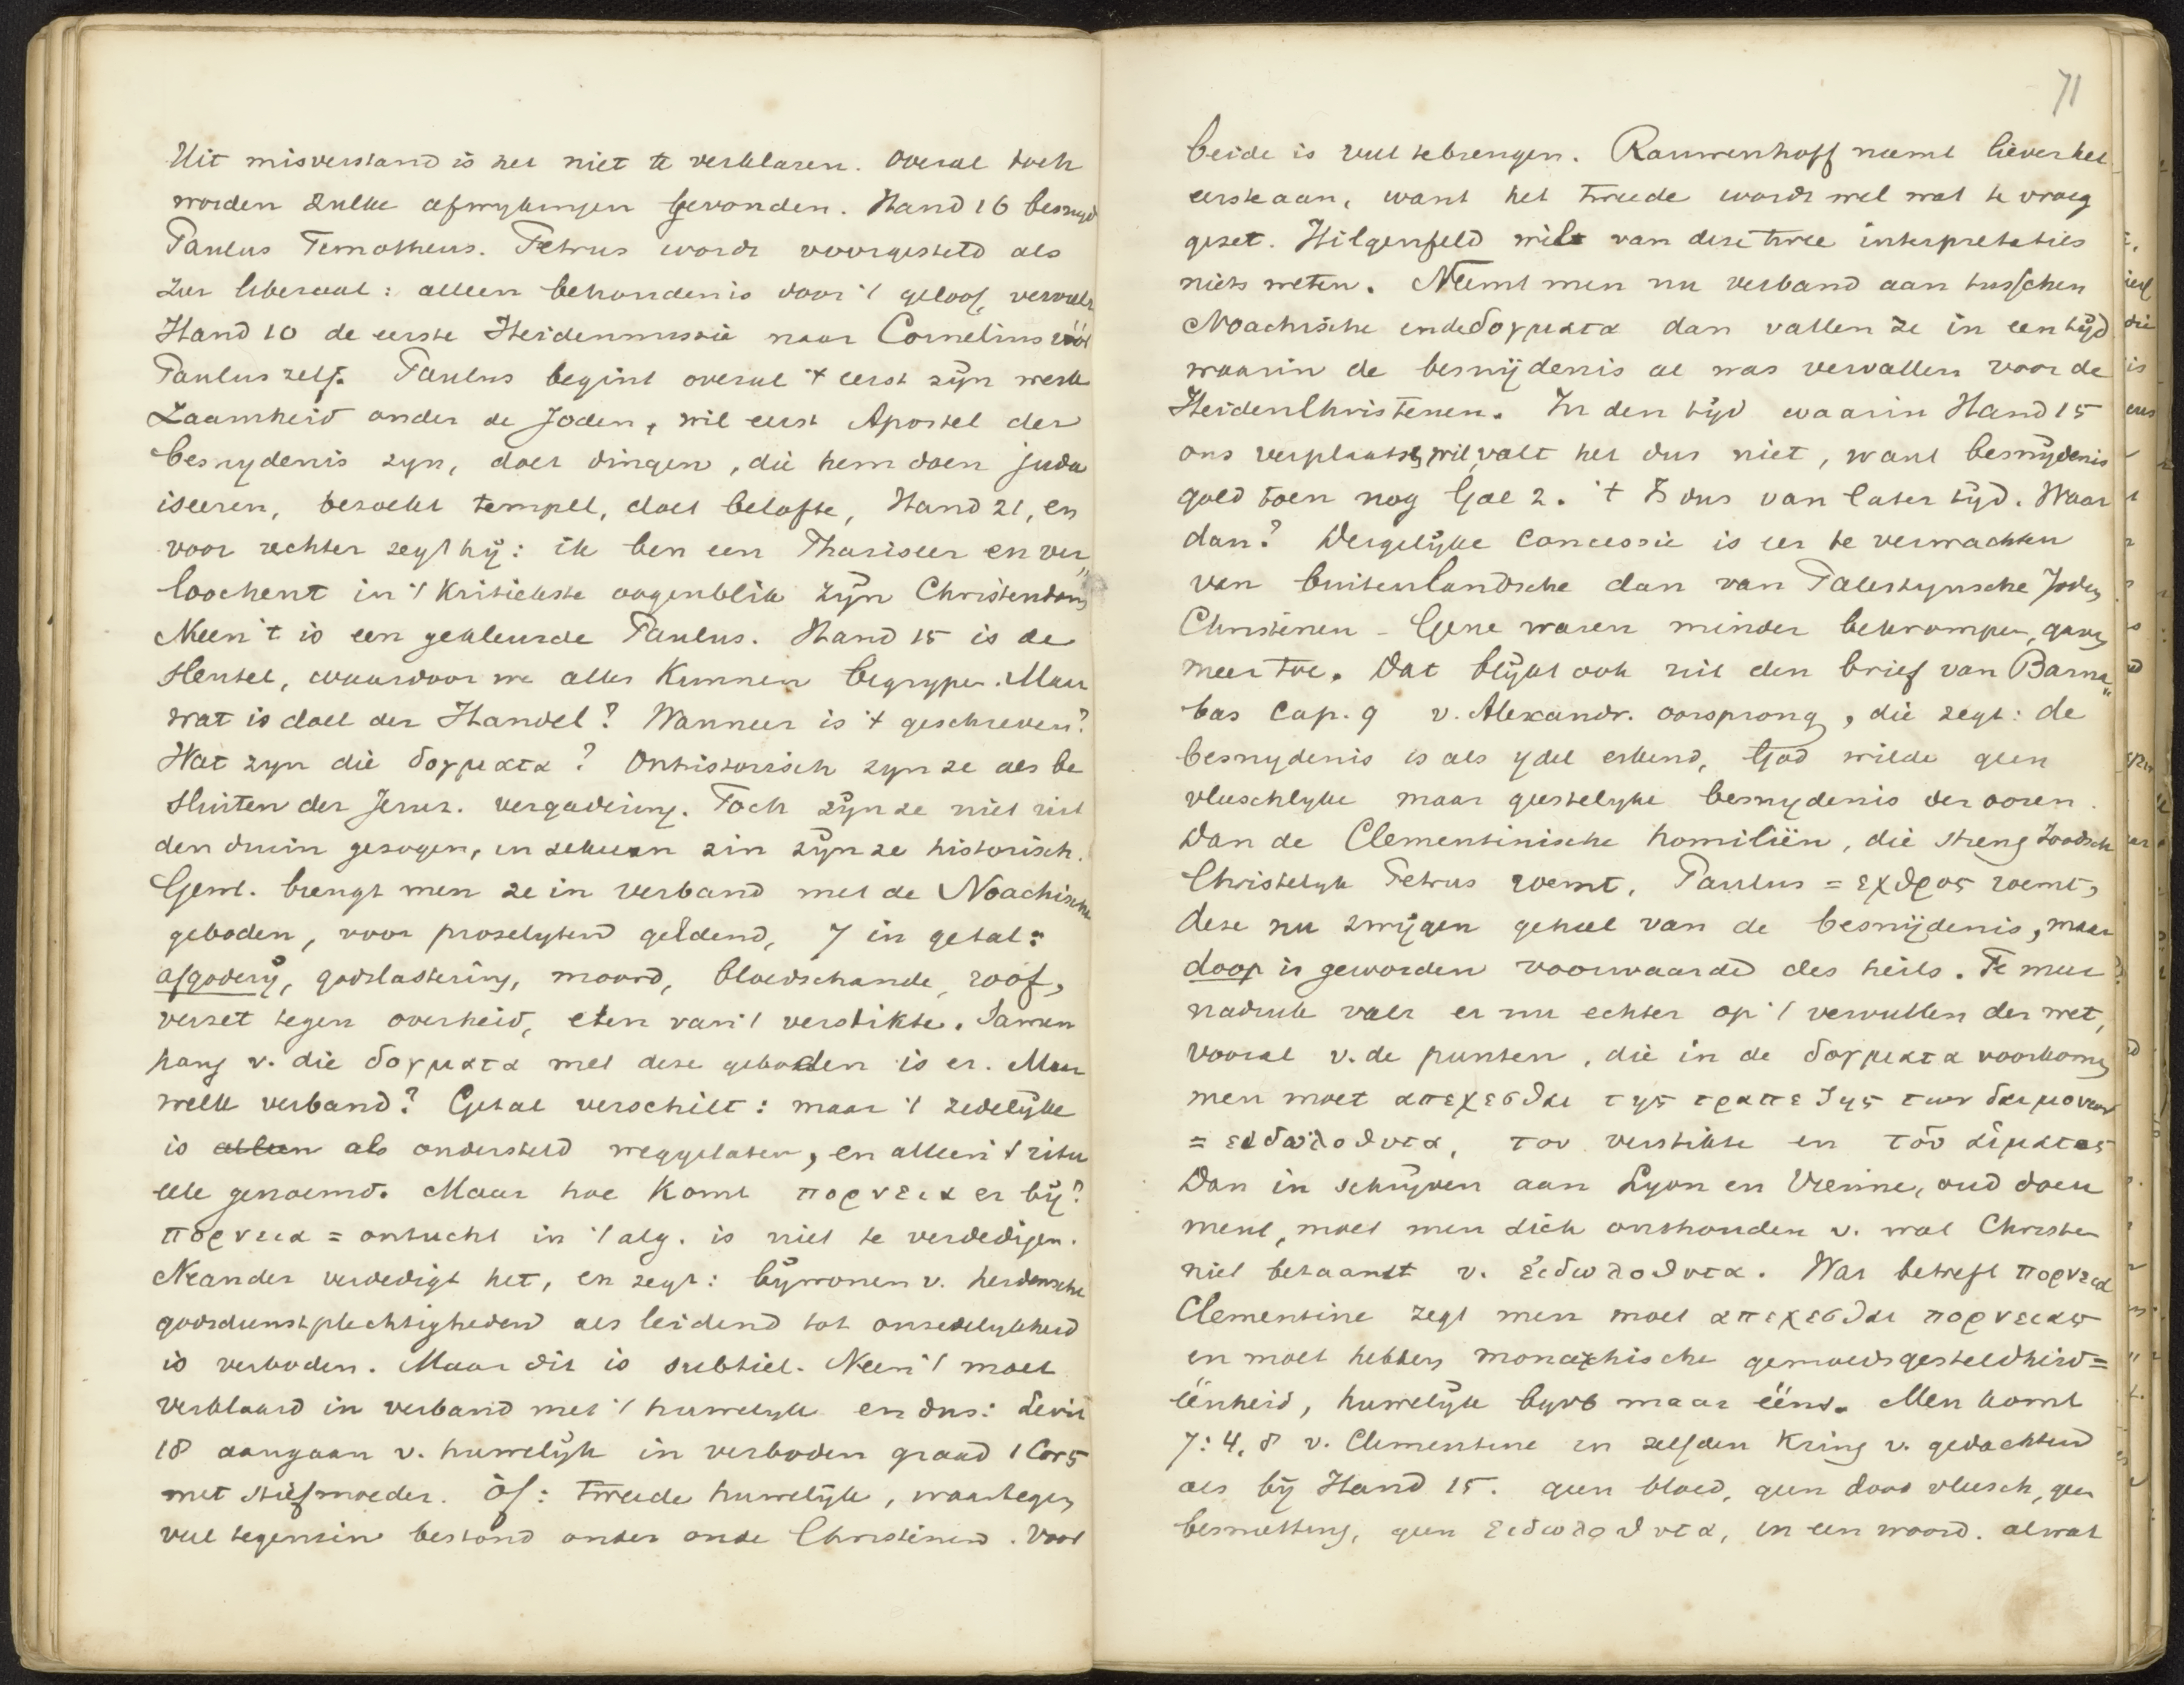 Uit misverstand is het niet te verklaren. Overal toch
worden zulke afwykingen gevonden. Hand 16 besnyd
Paulus Timotheus. Petrus wordt voorgesteld als
zeer liberaal: alleen behoudenis door 't geloof, vervult
Hand 10 de eerste Heidenmissie naar Cornelius vóór
Paulus zelf. Paulus begint overal 't eerst zyn werk
zaamheid onder de Joden, wil eerst Apostel der
besnydenis zyn, doet dingen, die hem doen juda
iseeren, bezoekt tempel, doet belofte, Hand 21, en
voor rechter zegt hÿ: ik ben een Phariseer en ver„
loochent in 't kritiekste oogenblik zÿn Christendom
Neen 't is een gekleurde Paulus. Hand 15 is de
sleutel, waardoor we alles kunnen begrypen. Maar
wat is doel der Handel? Wanneer is 't geschreven?
Wat zyn die δογματα? Onhistorisch zyn ze als be
sluiten der Jeruz. vergadering. Toch zÿn ze niet uit
den duim gezogen, in zekeren zin zÿn ze historisch.
Gew. brengt men ze in verband met de Noachische
geboden, voor proselyten geldend, 7 in getal:
afgodery, godslastering, moord, bloedschande, roof,
verzet tegen overheid, eten van 't verstikte. Samen
hang v. die δογματα met deze geboden is er. Maar
welk verband? Getal verschilt: maar 't zedelÿke
is alleen als ondersteld weggelaten, en alleen 't ritu
eele genoemd. Maar hoe komt πορνεια er bÿ?
πορνεια = ontucht in 't alg. is niet te verdedigen.
Neander verdedigt het, en zegt: bÿwonen v. heidensche
godsdienstplechtigheden als leidend tot onzedelykheid
is verboden. Maar dit is subtiel. Neen 't moet
verklaard in verband met 't huwelyk en dus: Levit
18 aangaan v. huwelÿk in verboden graad 1 Cor 5
met stiefmoeder. Òf: tweede huwelÿk, waartegen
veel tegenzin bestond onder oude Christenen. Voor
71
beide is veel te brengen. Rauwenhoff neemt liever het
eerste aan, want het tweede wordt wel wat te vroeg
gezet. Hilgenfeld wil van deze twee interpretaties
niets weten. Neemt men nu verband aan tusschen
Noachische en de δογματα dan vallen ze in een tÿd
waarin de besnÿdenis al was vervallen voor de
HeidenChristenen. In den tÿd waarin Hand 15
ons verplaatsen wil, valt het dus niet, want besnÿdenis
gold toen nog Gal 2. 't Is dus van later tÿd. Waar
dan? Dergelÿke concessie is eer te verwachten
van buitenlandsche dan van Palestynsche Joden
Christenen - Gene waren minder bekrompen, gaven
meer toe. Dat blÿkt ook uit den brief van Barna„
bas cap. 9 v. Alexandr. oorsprong, die zegt: de
besnydenis is als ydel erkend, God wilde geen
vleeschlyke maar geestelyke besnydenis der ooren.
Dan de Clementinische homiliën, die streng Joodsch
Christelyk Petrus roemt, Paulus = εχθρος noemt,
deze nu zwÿgen geheel van de besnÿdenis, maar
doop is geworden voorwaarde des heils. Te meer
nadruk valt er nu echter op 't vervullen der wet,
vooral v. de punten, die in de δογματα voorkomen
men moet απεχεσθαι της τραπεζης των δαιμονιων
= ειδωλοθυτα, του verstikte en του αιματος
Dan in schrÿven aan Lyon en Vienne, oud docu
ment, moet men zich onthouden v. wat Christen
niet betaamt v. ειδωλοθυτα. Wat betreft πορνεια
Clementine zegt men moet απεχεσθαι πορνειας
en moet hebben monarchische gemoedsgesteldheid =
éénheid, huwelÿk byvb maar ééns. Men komt
7: 4, 8 v. Clementine in zelfden kring v. gedachten
als bÿ Hand 15. geen bloed, geen dood vleesch, geen
besmetting, geen ειδωλοθυτα, in een woord. alwat